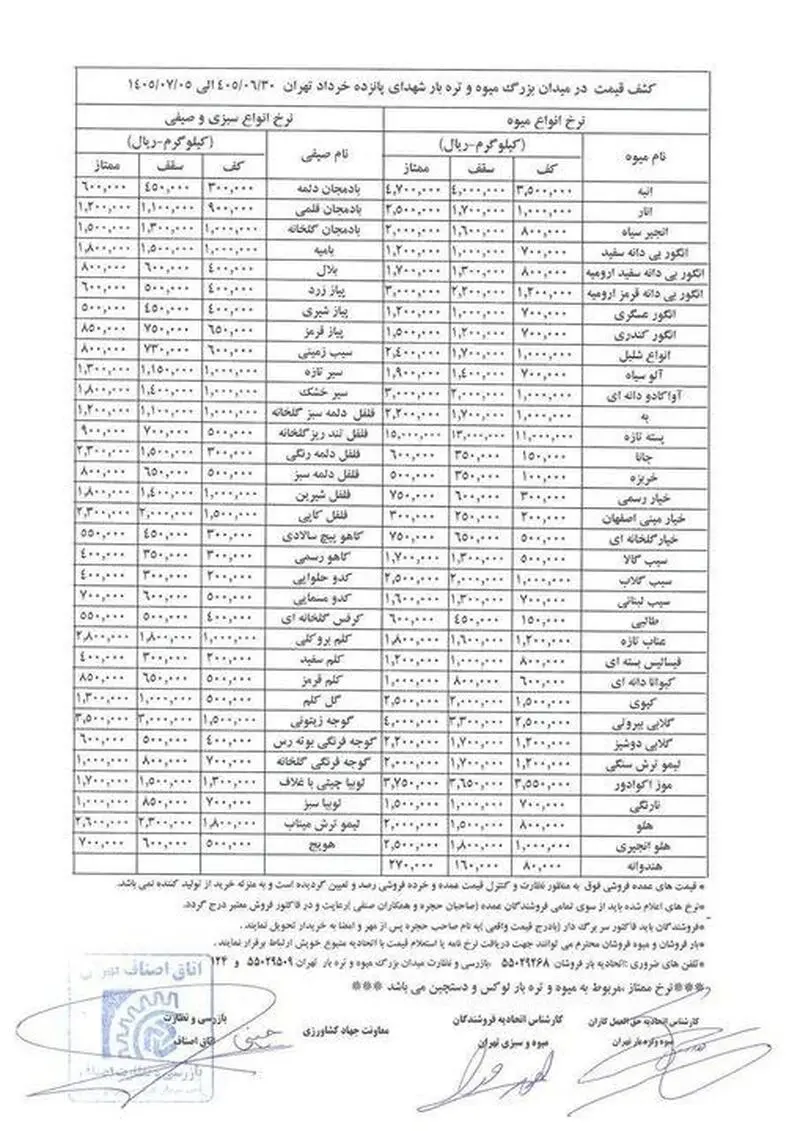 کشف قیمت در میدان بزرگ میوه و تره بار شهدای پانزده خرداد تهران ۱٤۰۵/۰۷/۰۵ الی ٤۰۵/۰٦/۳۰
نرخ انواع میوه نرخ انواع سبزی و صیفی
نام میوه (کیلوگرم-ریال) نام صیفی (کیلوگرم-ریال)
کف سقف ممتاز کف سقف ممتاز
انبه ۳,۵۰۰,۰۰۰ ٤,۰۰۰,۰۰۰ ٤,۷۰۰,۰۰۰ بادمجان دلمه ۳۰۰,۰۰۰ ٤۵۰,۰۰۰ ٦۰۰,۰۰۰
انار ۱,۰۰۰,۰۰۰ ۱,۷۰۰,۰۰۰ ۲,۵۰۰,۰۰۰ بادمجان قلمی ۹۰۰,۰۰۰ ۱,۱۰۰,۰۰۰ ۱,۲۰۰,۰۰۰
انجیر سیاه ۸۰۰,۰۰۰ ۱,٦۰۰,۰۰۰ ۲,۰۰۰,۰۰۰ بادمجان گلخانه ۱,۰۰۰,۰۰۰ ۱,۳۰۰,۰۰۰ ۱,۵۰۰,۰۰۰
انگور بی دانه سفید ۷۰۰,۰۰۰ ۱,۰۰۰,۰۰۰ ۱,۲۰۰,۰۰۰ بامیه ۱,۰۰۰,۰۰۰ ۱,۵۰۰,۰۰۰ ۱,۸۰۰,۰۰۰
انگور بی دانه سفید ارومیه ۸۰۰,۰۰۰ ۱,۳۰۰,۰۰۰ ۱,۷۰۰,۰۰۰ بلال ٤۰۰,۰۰۰ ٦۰۰,۰۰۰ ۸۰۰,۰۰۰
انگور بی دانه قرمز ارومیه ۱,۲۰۰,۰۰۰ ۲,۲۰۰,۰۰۰ ۳,۰۰۰,۰۰۰ پیاز زرد ٤۰۰,۰۰۰ ۵۰۰,۰۰۰ ٦۰۰,۰۰۰
انگور عسگری ۷۰۰,۰۰۰ ۱,۰۰۰,۰۰۰ ۱,۲۰۰,۰۰۰ پیاز شیری ٤۰۰,۰۰۰ ٤۵۰,۰۰۰ ۵۰۰,۰۰۰
انگور کندری ۷۰۰,۰۰۰ ۱,۲۰۰,۰۰۰ ۱,۵۰۰,۰۰۰ پیاز قرمز ٦۵۰,۰۰۰ ۷۵۰,۰۰۰ ۸۵۰,۰۰۰
انواع شلیل ۱,۰۰۰,۰۰۰ ۱,۷۰۰,۰۰۰ ۲,٤۰۰,۰۰۰ سیب زمینی ٦۰۰,۰۰۰ ۷۳۰,۰۰۰ ۸۰۰,۰۰۰
آلو سیاه ۷۰۰,۰۰۰ ۱,٤۰۰,۰۰۰ ۱,۹۰۰,۰۰۰ سیر تازه ۱,۰۰۰,۰۰۰ ۱,۱۵۰,۰۰۰ ۱,۳۰۰,۰۰۰
آواکادو دانه ای ۱,۰۰۰,۰۰۰ ۲,۰۰۰,۰۰۰ ۳,۰۰۰,۰۰۰ سیر خشک ۱,۰۰۰,۰۰۰ ۱,٤۰۰,۰۰۰ ۱,۸۰۰,۰۰۰
به ۱,۰۰۰,۰۰۰ ۱,۷۰۰,۰۰۰ ۲,۲۰۰,۰۰۰ فلفل دلمه سبز گلخانه ۱,۰۰۰,۰۰۰ ۱,۱۰۰,۰۰۰ ۱,۲۰۰,۰۰۰
پسته تازه ۱۱,۰۰۰,۰۰۰ ۱۳,۰۰۰,۰۰۰ ۱۵,۰۰۰,۰۰۰ فلفل تند ریزگلخانه ۵۰۰,۰۰۰ ۷۰۰,۰۰۰ ۹۰۰,۰۰۰
چانا ۱۵۰,۰۰۰ ۳۵۰,۰۰۰ ٦۰۰,۰۰۰ فلفل دلمه رنگی ۳۰۰,۰۰۰ ۱,۵۰۰,۰۰۰ ۲,۳۰۰,۰۰۰
خربزه ۱۰۰,۰۰۰ ۳۵۰,۰۰۰ ۵۰۰,۰۰۰ فلفل دلمه سبز ۵۰۰,۰۰۰ ٦۵۰,۰۰۰ ۸۰۰,۰۰۰
خیار رسمی ۳۰۰,۰۰۰ ٦۰۰,۰۰۰ ۷۵۰,۰۰۰ فلفل شیرین ۱,۰۰۰,۰۰۰ ۱,٤۰۰,۰۰۰ ۱,۸۰۰,۰۰۰
خیار مینی اصفهان ۲۰۰,۰۰۰ ۲۵۰,۰۰۰ ۳۰۰,۰۰۰ فلفل کاپی ۱,۵۰۰,۰۰۰ ۲,۰۰۰,۰۰۰ ۲,۳۰۰,۰۰۰
خیارگلخانه ای ۵۰۰,۰۰۰ ٦۵۰,۰۰۰ ۷۵۰,۰۰۰ کاهو پیچ سالادی ۳۰۰,۰۰۰ ٤۵۰,۰۰۰ ۵۵۰,۰۰۰
سیب گالا ۵۰۰,۰۰۰ ۱,۳۰۰,۰۰۰ ۱,۷۰۰,۰۰۰ کاهو رسمی ۳۰۰,۰۰۰ ۳۵۰,۰۰۰ ٤۰۰,۰۰۰
سیب گلاب ۱,۰۰۰,۰۰۰ ۲,۰۰۰,۰۰۰ ۲,۵۰۰,۰۰۰ کدو حلوایی ۲۰۰,۰۰۰ ۳۰۰,۰۰۰ ٤۰۰,۰۰۰
سیب لبنانی ۷۰۰,۰۰۰ ۱,۳۰۰,۰۰۰ ۱,٦۰۰,۰۰۰ کدو مسمایی ۵۰۰,۰۰۰ ٦۰۰,۰۰۰ ۷۰۰,۰۰۰
طالبی ۱۵۰,۰۰۰ ٤۵۰,۰۰۰ ٦۰۰,۰۰۰ کرفس گلخانه ای ٤۰۰,۰۰۰ ۵۰۰,۰۰۰ ۵۵۰,۰۰۰
عناب تازه ۱,۲۰۰,۰۰۰ ۱,٦۰۰,۰۰۰ ۱,۸۰۰,۰۰۰ کلم بروکلی ۱,۰۰۰,۰۰۰ ۱,۸۰۰,۰۰۰ ۲,۸۰۰,۰۰۰
فیسالیس بسته ای ۸۰۰,۰۰۰ ۱,۰۰۰,۰۰۰ ۱,۲۰۰,۰۰۰ کلم سفید ۲۰۰,۰۰۰ ۳۰۰,۰۰۰ ٤۰۰,۰۰۰
کیوانا دانه ای ٦۰۰,۰۰۰ ۸۰۰,۰۰۰ ۱,۰۰۰,۰۰۰ کلم قرمز ۵۰۰,۰۰۰ ٦۵۰,۰۰۰ ۸۵۰,۰۰۰
کیوی ۱,۵۰۰,۰۰۰ ۲,۰۰۰,۰۰۰ ۲,۵۰۰,۰۰۰ گل کلم ۵۰۰,۰۰۰ ۱,۰۰۰,۰۰۰ ۱,۳۰۰,۰۰۰
گلابی بیروتی ۲,۵۰۰,۰۰۰ ۳,۳۰۰,۰۰۰ ٤,۰۰۰,۰۰۰ گوجه زیتونی ۱,۵۰۰,۰۰۰ ۳,۰۰۰,۰۰۰ ۳,۵۰۰,۰۰۰
گلابی دوشیز ۱,۲۰۰,۰۰۰ ۱,۷۰۰,۰۰۰ ۲,۲۰۰,۰۰۰ گوجه فرنگی بوته رس ٤۰۰,۰۰۰ ۵۰۰,۰۰۰ ٦۰۰,۰۰۰
لیمو ترش سنگی ۱,۲۰۰,۰۰۰ ۱,۷۰۰,۰۰۰ ۲,۰۰۰,۰۰۰ گوجه فرنگی گلخانه ۷۰۰,۰۰۰ ۸۰۰,۰۰۰ ۱,۰۰۰,۰۰۰
موز اکوادور ۳,۵۵۰,۰۰۰ ۳,٦۵۰,۰۰۰ ۳,۷۵۰,۰۰۰ لوبیا چیتی با غلاف ۱,۳۰۰,۰۰۰ ۱,۵۰۰,۰۰۰ ۱,۷۰۰,۰۰۰
نارنگی ۷۰۰,۰۰۰ ۱,۰۰۰,۰۰۰ ۱,۵۰۰,۰۰۰ لوبیا سبز ۷۰۰,۰۰۰ ۸۵۰,۰۰۰ ۱,۰۰۰,۰۰۰
هلو ۸۰۰,۰۰۰ ۱,۵۰۰,۰۰۰ ۲,۰۰۰,۰۰۰ لیمو ترش میناب ۱,۸۰۰,۰۰۰ ۲,۳۰۰,۰۰۰ ۲,٦۰۰,۰۰۰
هلو انجیری ۱,۰۰۰,۰۰۰ ۱,۸۰۰,۰۰۰ ۲,۵۰۰,۰۰۰ هویج ۵۰۰,۰۰۰ ٦۰۰,۰۰۰ ۷۰۰,۰۰۰
هندوانه ۸۰,۰۰۰ ۱٦۰,۰۰۰ ۲۷۰,۰۰۰
* قیمت های عمده فروشی فوق به منظور نظارت و کنترل قیمت عمده و خرده فروشی رصد و تعیین گردیده است و به منزله خرید از تولید کننده نمی باشد.
*نرخ های اعلام شده باید از سوی تمامی فروشندگان عمده (صاحبان حجره و همکاران صنفی )رعایت و در فاکتور فروش معتبر درج گردد.
*فروشندگان باید فاکتور سر برگ دار (بادرج قیمت واقعی )به نام صاحب حجره پس از مهر و امضا به خریدار تحویل نمایند .
*بار فروشان و میوه فروشان محترم می توانند جهت دریافت نرخ نامه یا استعلام قیمت با اتحادیه متبوع خویش ارتباط برقرار نمایند .
*تلفن های ضروری :اتحادیه بار فروشان ۵۵۰۲۹۲٦۸ بازرسی و نظارت میدان بزرگ میوه و تره بار تهران ۵۵۰۲۹۵۰۹ و ۱۲٤
***نرخ ممتاز ،مربوط به میوه و تره بار لوکس و دستچین می باشد ***
کارشناس اتحادیه حق العمل کاران
میوه و تره بار تهران
کارشناس اتحادیه فروشندگان
میوه و سبزی تهران
معاونت جهاد کشاورزی
بازرسی و نظارت
اتاق اصناف
اتاق اصناف تهران
بازرسی و نظارت اصناف